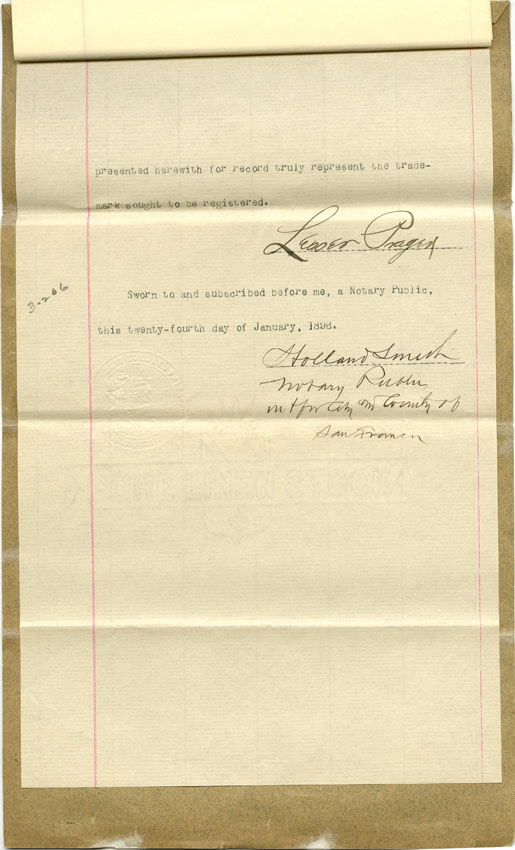 presented herewith for record truly represent the trade-
mark sought to be registered.
Lesser Prager
3-206
Sworn to and subscribed before me, a Notary Public,
this twenty-fourth day of January, 1898.
Holland Smith
Notary Public
in & for City and County of
San Francisco